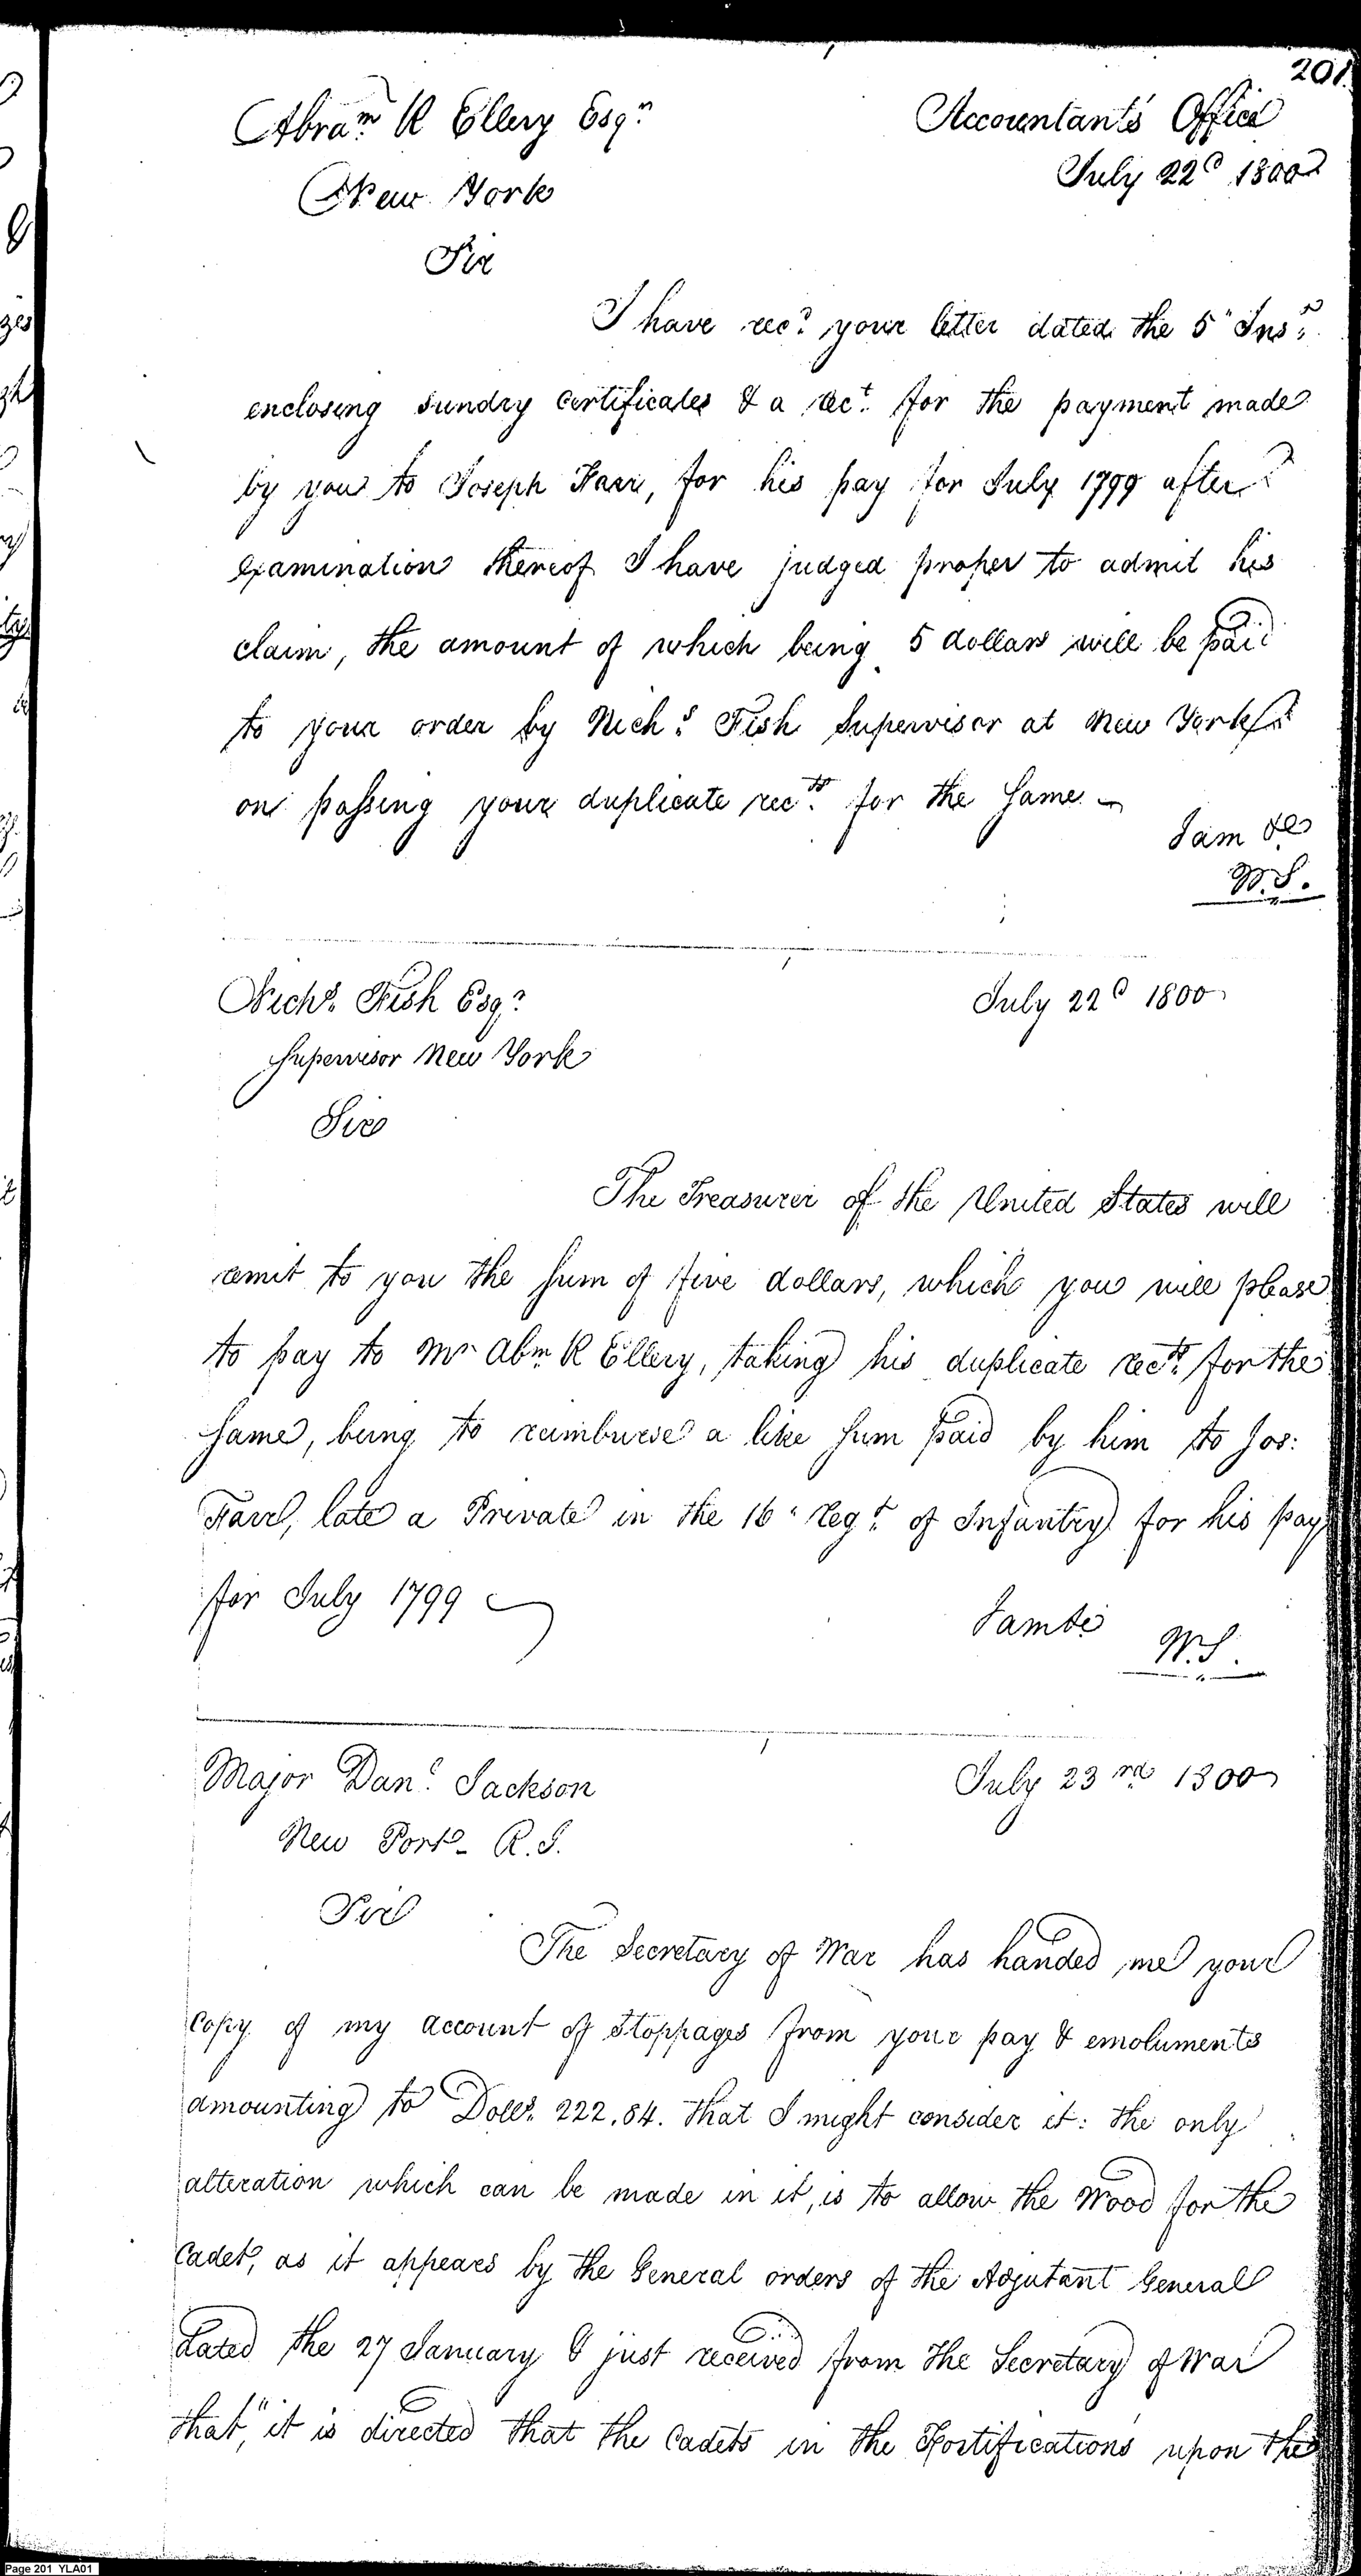 201.
Abram K Ellery Esqr
Accountant's Office
July 22d 1800
New York
Sir
I have recd your letter dated the 5" Inst
enclosing sundry Certificates & a rect. for the payment made
by you to Joseph Farr, for his pay for July 1799 after
examination thereof I have judged proper to admit his
claim, the amount of which being 5 dollars will be paid
to your order by Nichs. Fish Supervisor at New York
on passing your duplicate rects. for the same
I am &c
W.S.
Nichs. Fish Esqr
July 22d 1800
Supervisor New York
Sir
The Treasurer of the United States will
remit to you the sum of five dollars, which you will please
to pay to Mr Abm K Ellery, taking his duplicate rects. for the
same, being to reimburse a like sum paid by him to Jos:
Farr, late a Private in the 16" Regt. of Infantry for his pay
for July 1799
I am &c
W.S.
Major Danl. Jackson
July 23rd 1800
New Port - R.I.
Sir
The Secretary of War has handed me your
Copy of my account of Stoppages from your pay & emoluments
amounting to Dolls. 222.84. that I might consider it: the only
alteration which can be made in it, is to allow the Wood for the
Cadet, as it appears by the General orders of the Adjutant General
dated the 27 January & just received from the Secretary of War
that, "it is directed that the Cadets in the Fortifications upon the
Page 201 YLA01